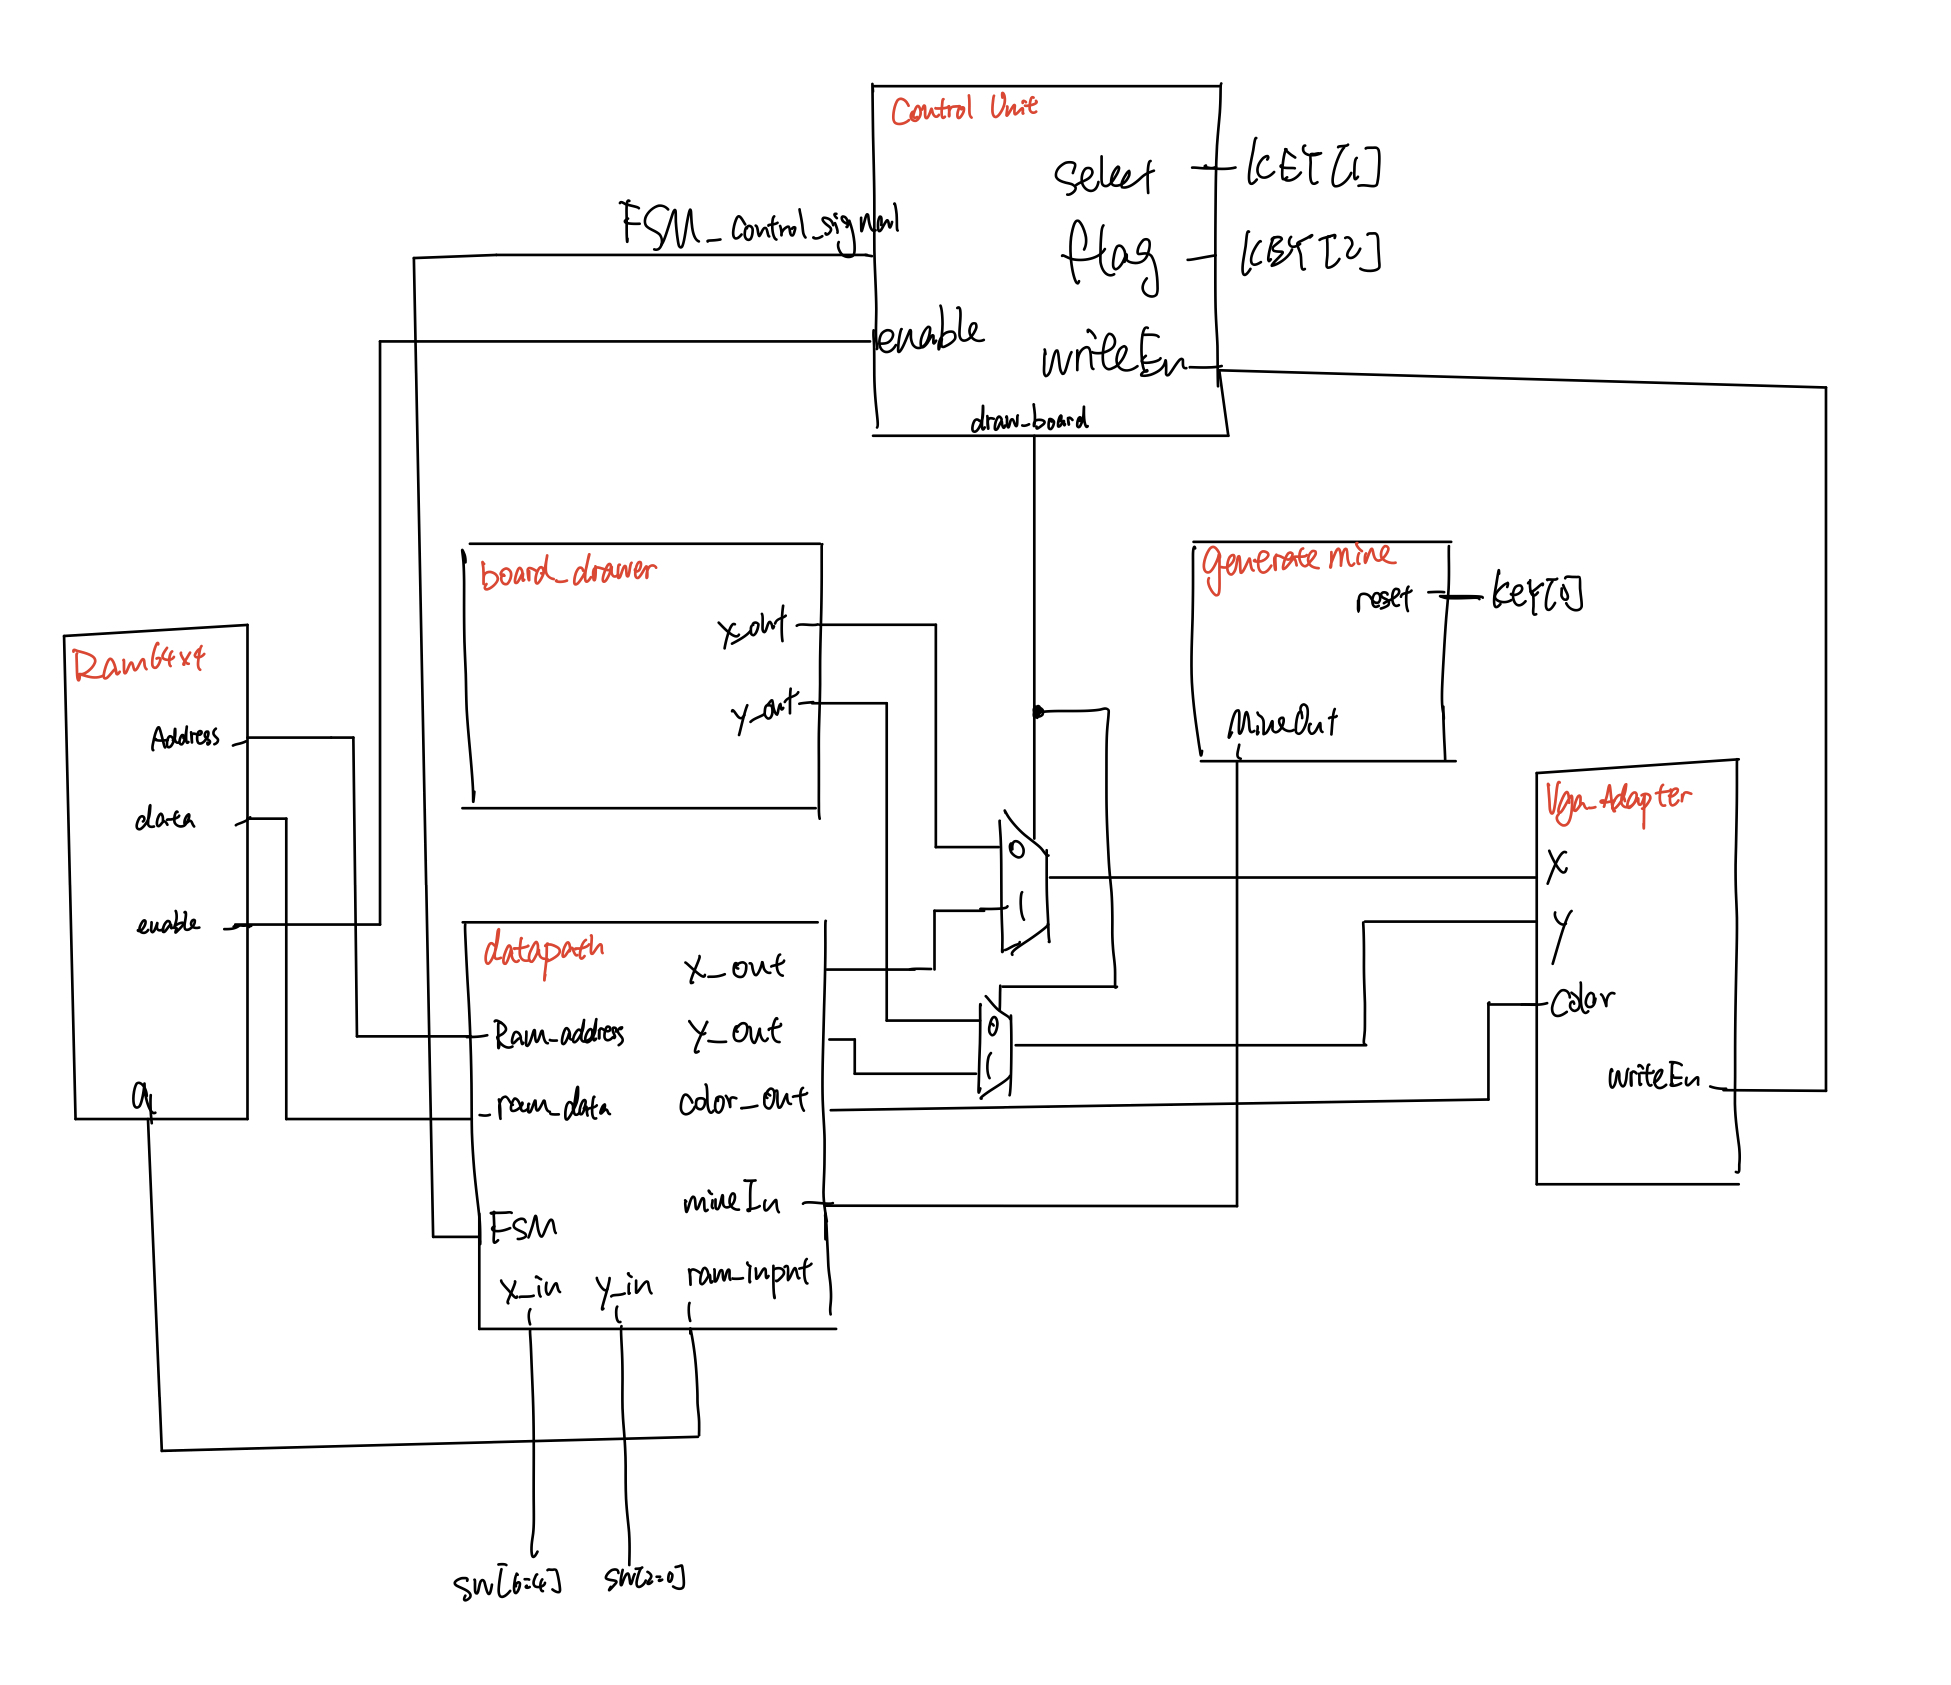 Control Unit
select
KEY[1]
FSM_control_signal
flag
KEY[2]
enable
writeEn
draw_board
board_drawer
x_out
y_out
generate mine
reset
KEY[0]
MineOut
Ram64x4
Address
data
enable
q
Vga_Adapter
X
Y
Color
writeEn
0
1
0
1
datapath
X_out
Ram_address
Y_out
ram_data
color_out
mineIn
FSM
X_in
Y_in
ram_input
SW[6:4]
SW[2:0]